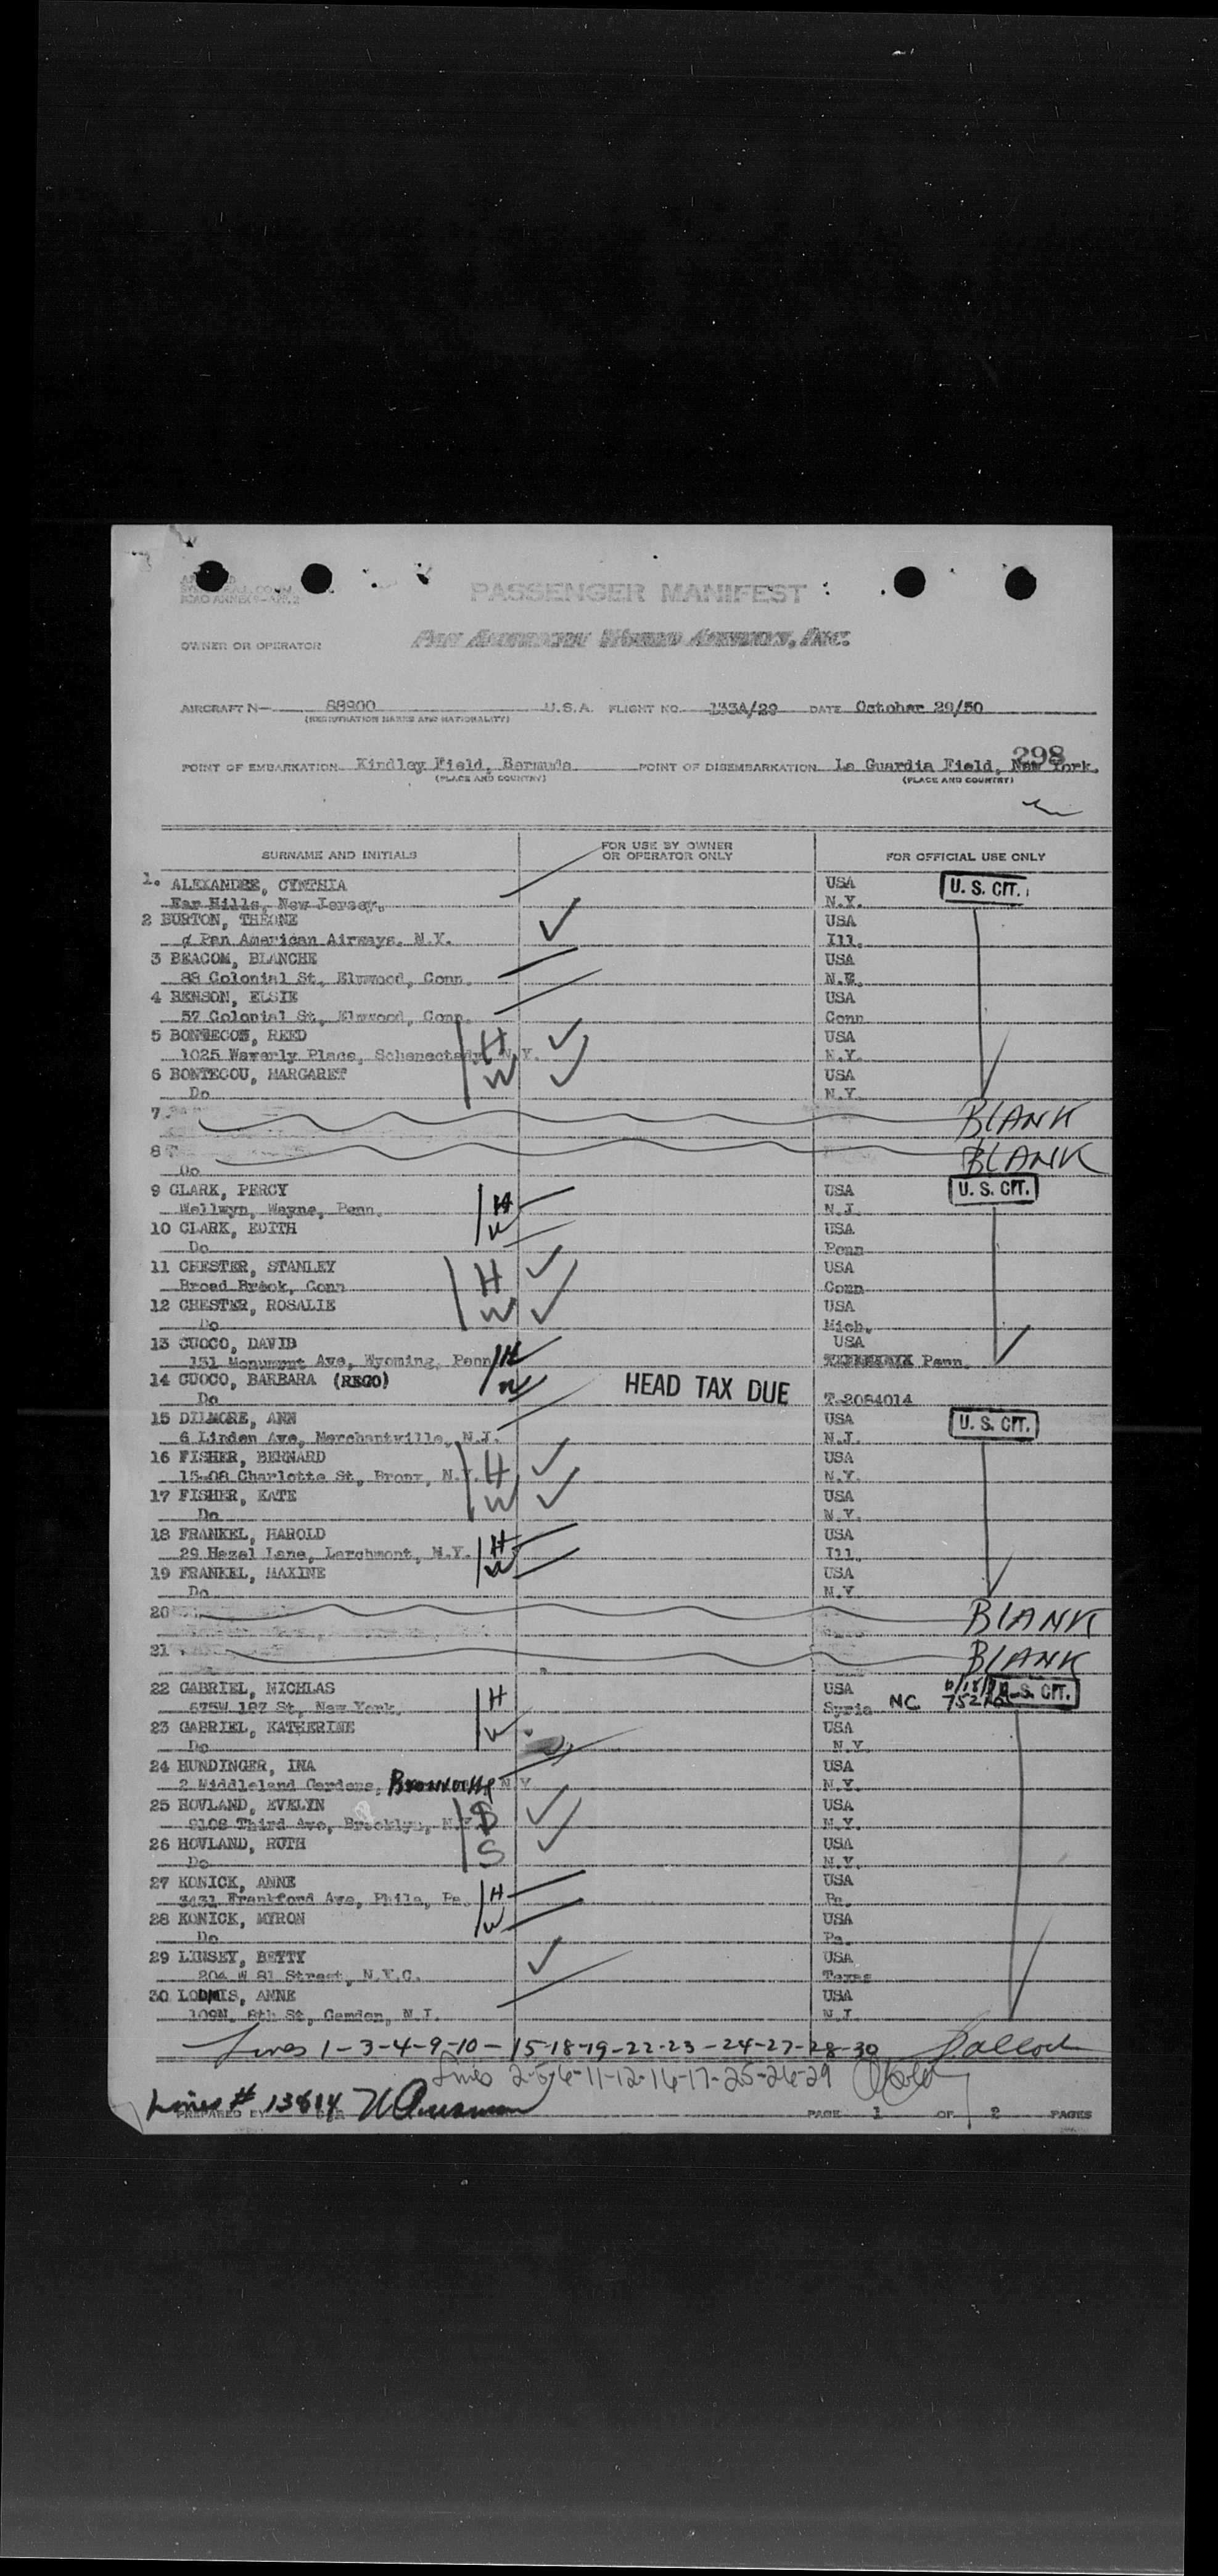 PASSENGER MANIFEST
OWNER OR OPERATOR PAN AMERICAN WORLD AIRWAYS, INC.
AIRCRAFT N— 88900 U.S.A. FLIGHT NO. 133A/29 DATE October 29/50
(REGISTRATION MARKS AND NATIONALITY)
298
POINT OF EMBARKATION Kindley Field, Bermuda POINT OF DISEMBARKATION La Guardia Field, New York.
(PLACE AND COUNTRY) (PLACE AND COUNTRY)
SURNAME AND INITIALS FOR USE BY OWNER OR OPERATOR ONLY FOR OFFICIAL USE ONLY
1. ALEXANDRE, CYNTHIA USA U. S. CIT.
Far Hills, New Jersey. N.Y.
2 BURTON, THEONE USA
Pan American Airways, N.Y. Ill.
3 BEACOM, BLANCHE USA
88 Colonial St, Elmwood, Conn. N.E.
4 BENSON, ELSIE USA
57 Colonial St, Elmwood, Conn. Conn
5 BONTECOU, REED H USA
1025 Waverly Place, Schenectady, N.Y. N.Y.
6 BONTECOU, MARGARET W USA
Do N.Y.
7 BLANK
8 BLANK
Do
9 CLARK, PERCY H USA U. S. CIT.
Wellwyn, Wayne, Penn. N.J.
10 CLARK, EDITH W USA
Do Penn
11 CHESTER, STANLEY H USA
Broad Brook, Conn Conn
12 CHESTER, ROSALIE W USA
Do Mich.
13 CUOCO, DAVID USA
151 Monument Ave, Wyoming, Penn H Penn.
14 CUOCO, BARBARA (REGO) W HEAD TAX DUE
Do T-2084014
15 DILMORE, ANN USA U. S. CIT.
6 Linden Ave, Merchantville, N.J. N.J.
16 FISHER, BERNARD H USA
15-08 Charlotte St, Bronx, N.Y. N.Y.
17 FISHER, KATE W USA
Do N.Y.
18 FRANKEL, HAROLD H USA
29 Hazel Lane, Larchmont, N.Y. Ill.
19 FRANKEL, MAXINE W USA
Do N.Y
20 BLANK
21 BLANK
22 GABRIEL, NICHLAS H USA U. S. CIT.
675W 187 St, New York. Syria NC
23 GABRIEL, KATHERINE W USA
Do N.Y.
24 HUNDINGER, INA USA
2 Middleland Gardens, N.Y. N.Y.
25 HOVLAND, EVELYN S USA
9108 Third Ave, Brooklyn, N.Y. N.Y.
26 HOVLAND, RUTH S USA
Do N.Y.
27 KONICK, ANNE H USA
3431 Frankford Ave, Phila, Pa. Pa.
28 KONICK, MYRON W USA
Do Pa.
29 LINSEY, BETTY USA
204 W 81 Street, N.Y.C. Texas
30 LOOMIS, ANNE USA
109N. 8th St, Camden, N.J. N.J.
Lines 1-3-4-9-10-15-18-19-22-23-24-27-28-30
Lines 2-5-6-11-12-16-17-25-26-29
Lines # 13 & 14
PREPARED BY PAGE 1 OF 2 PAGES